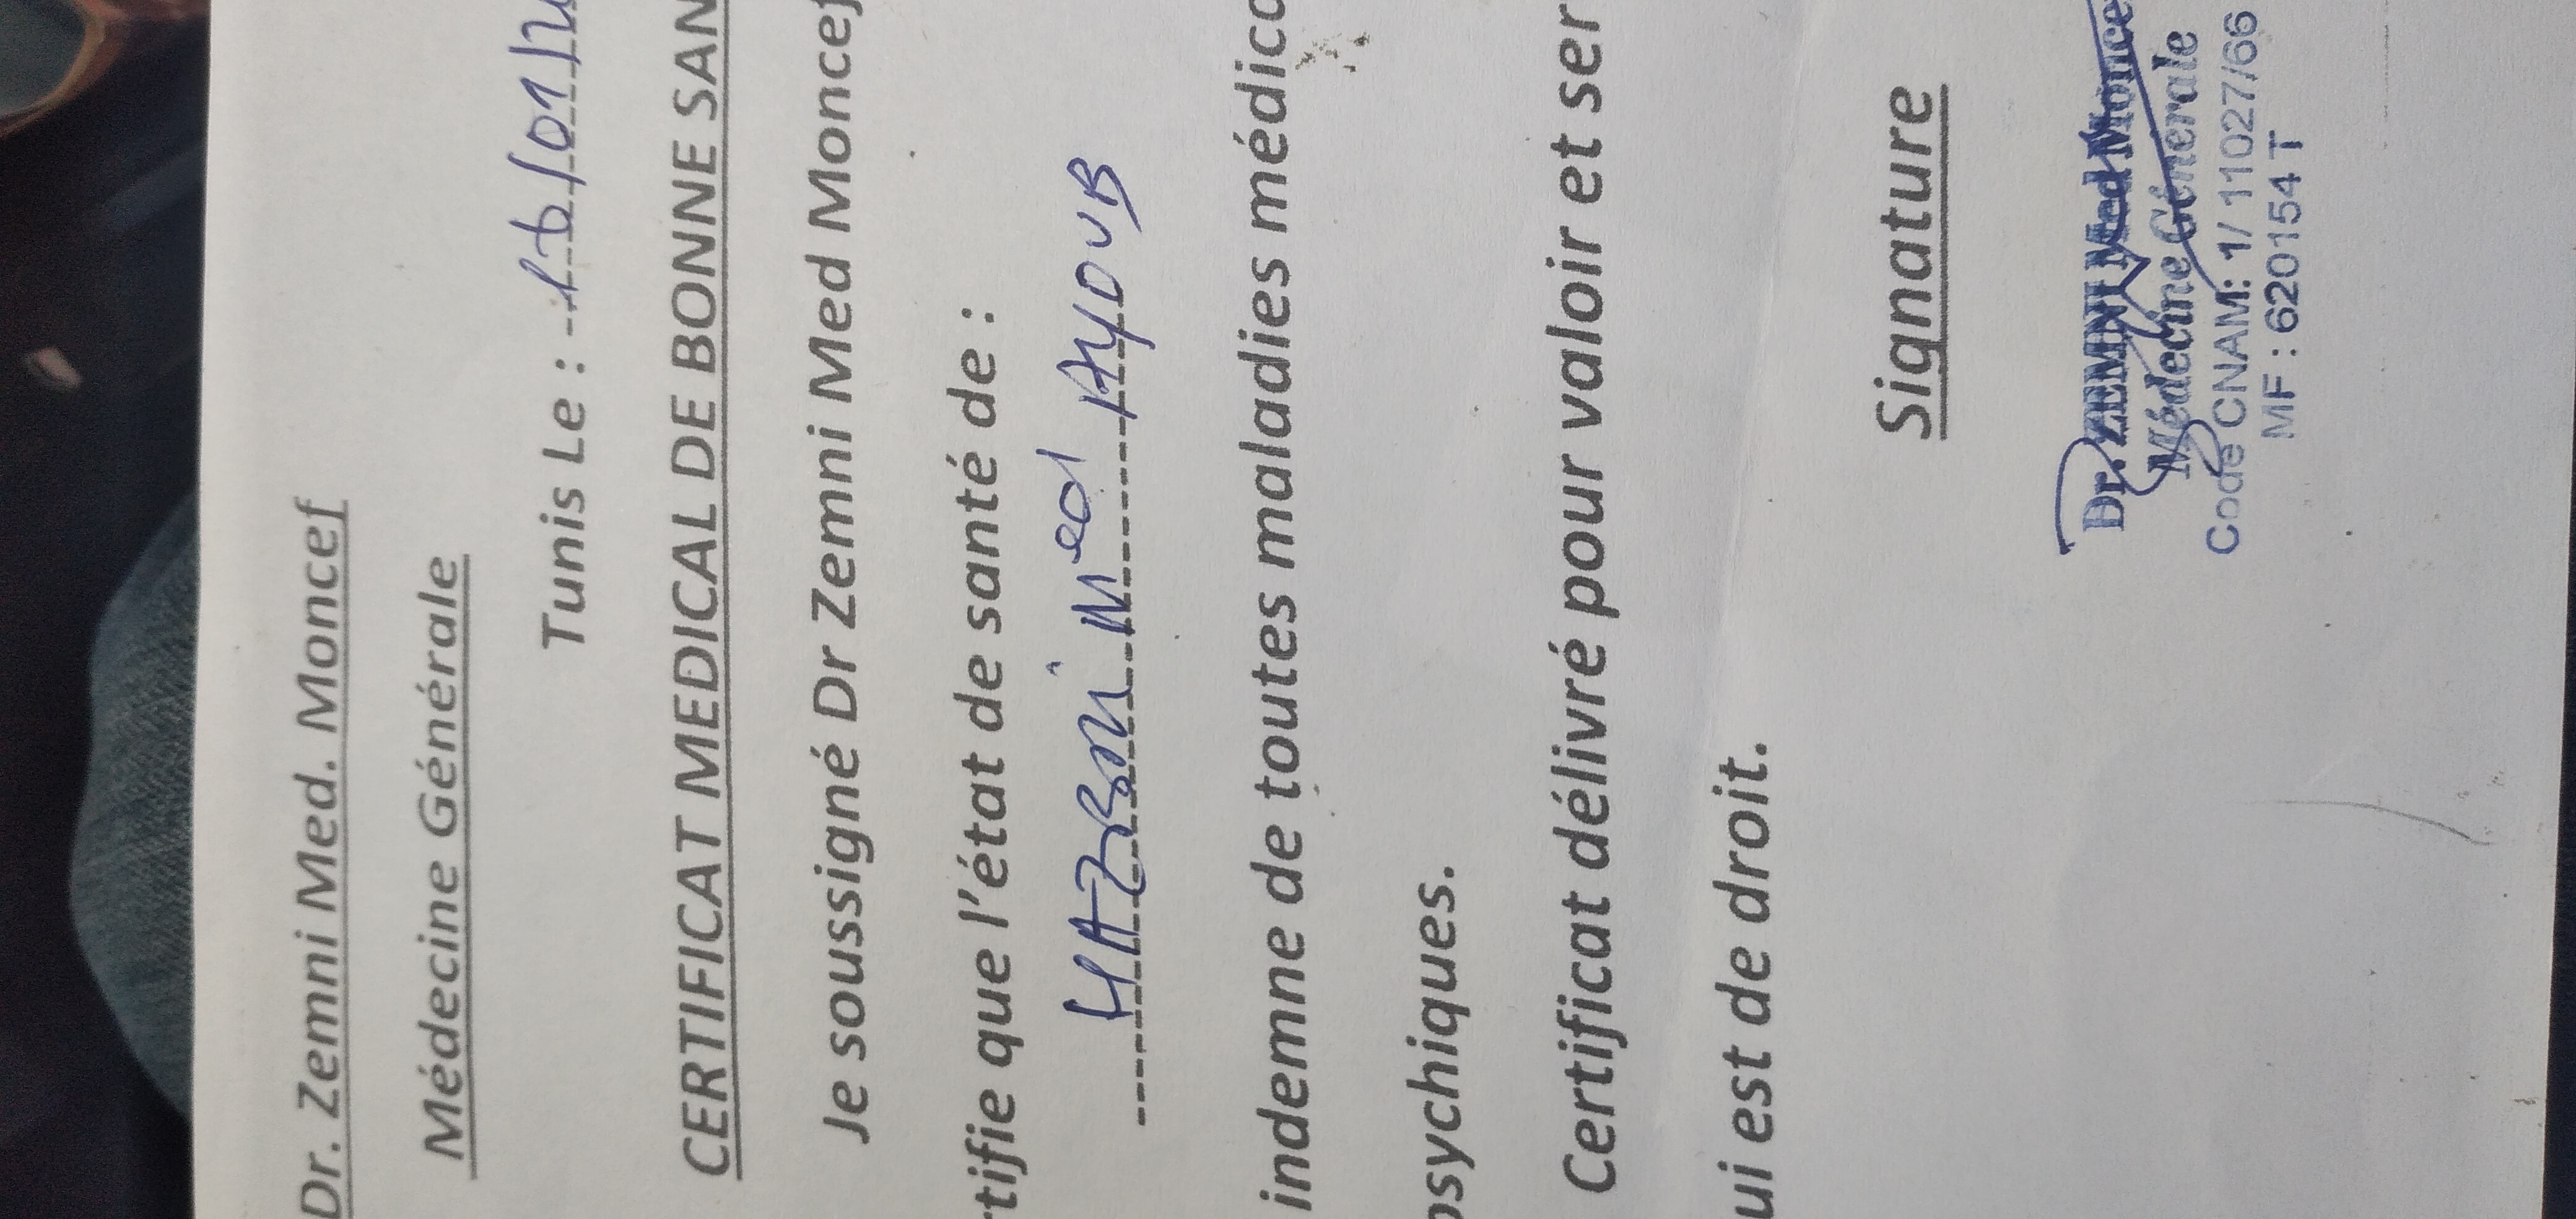 Dr. Zemni Med. Moncef
Médecine Générale
Tunis Le :
CERTIFICAT MEDICAL DE BONNE SAN
Je soussigné Dr Zemni Med Moncef
rtifie que l'état de santé de :
Med AYOUB
indemne de toutes maladies médico
psychiques.
Certificat délivré pour valoir et ser
ui est de droit.
Signature
Dr. ZEMNI Med Moncef
Médecine Générale
Code CNAM: 1/ 11027/66
MF : 620154 T